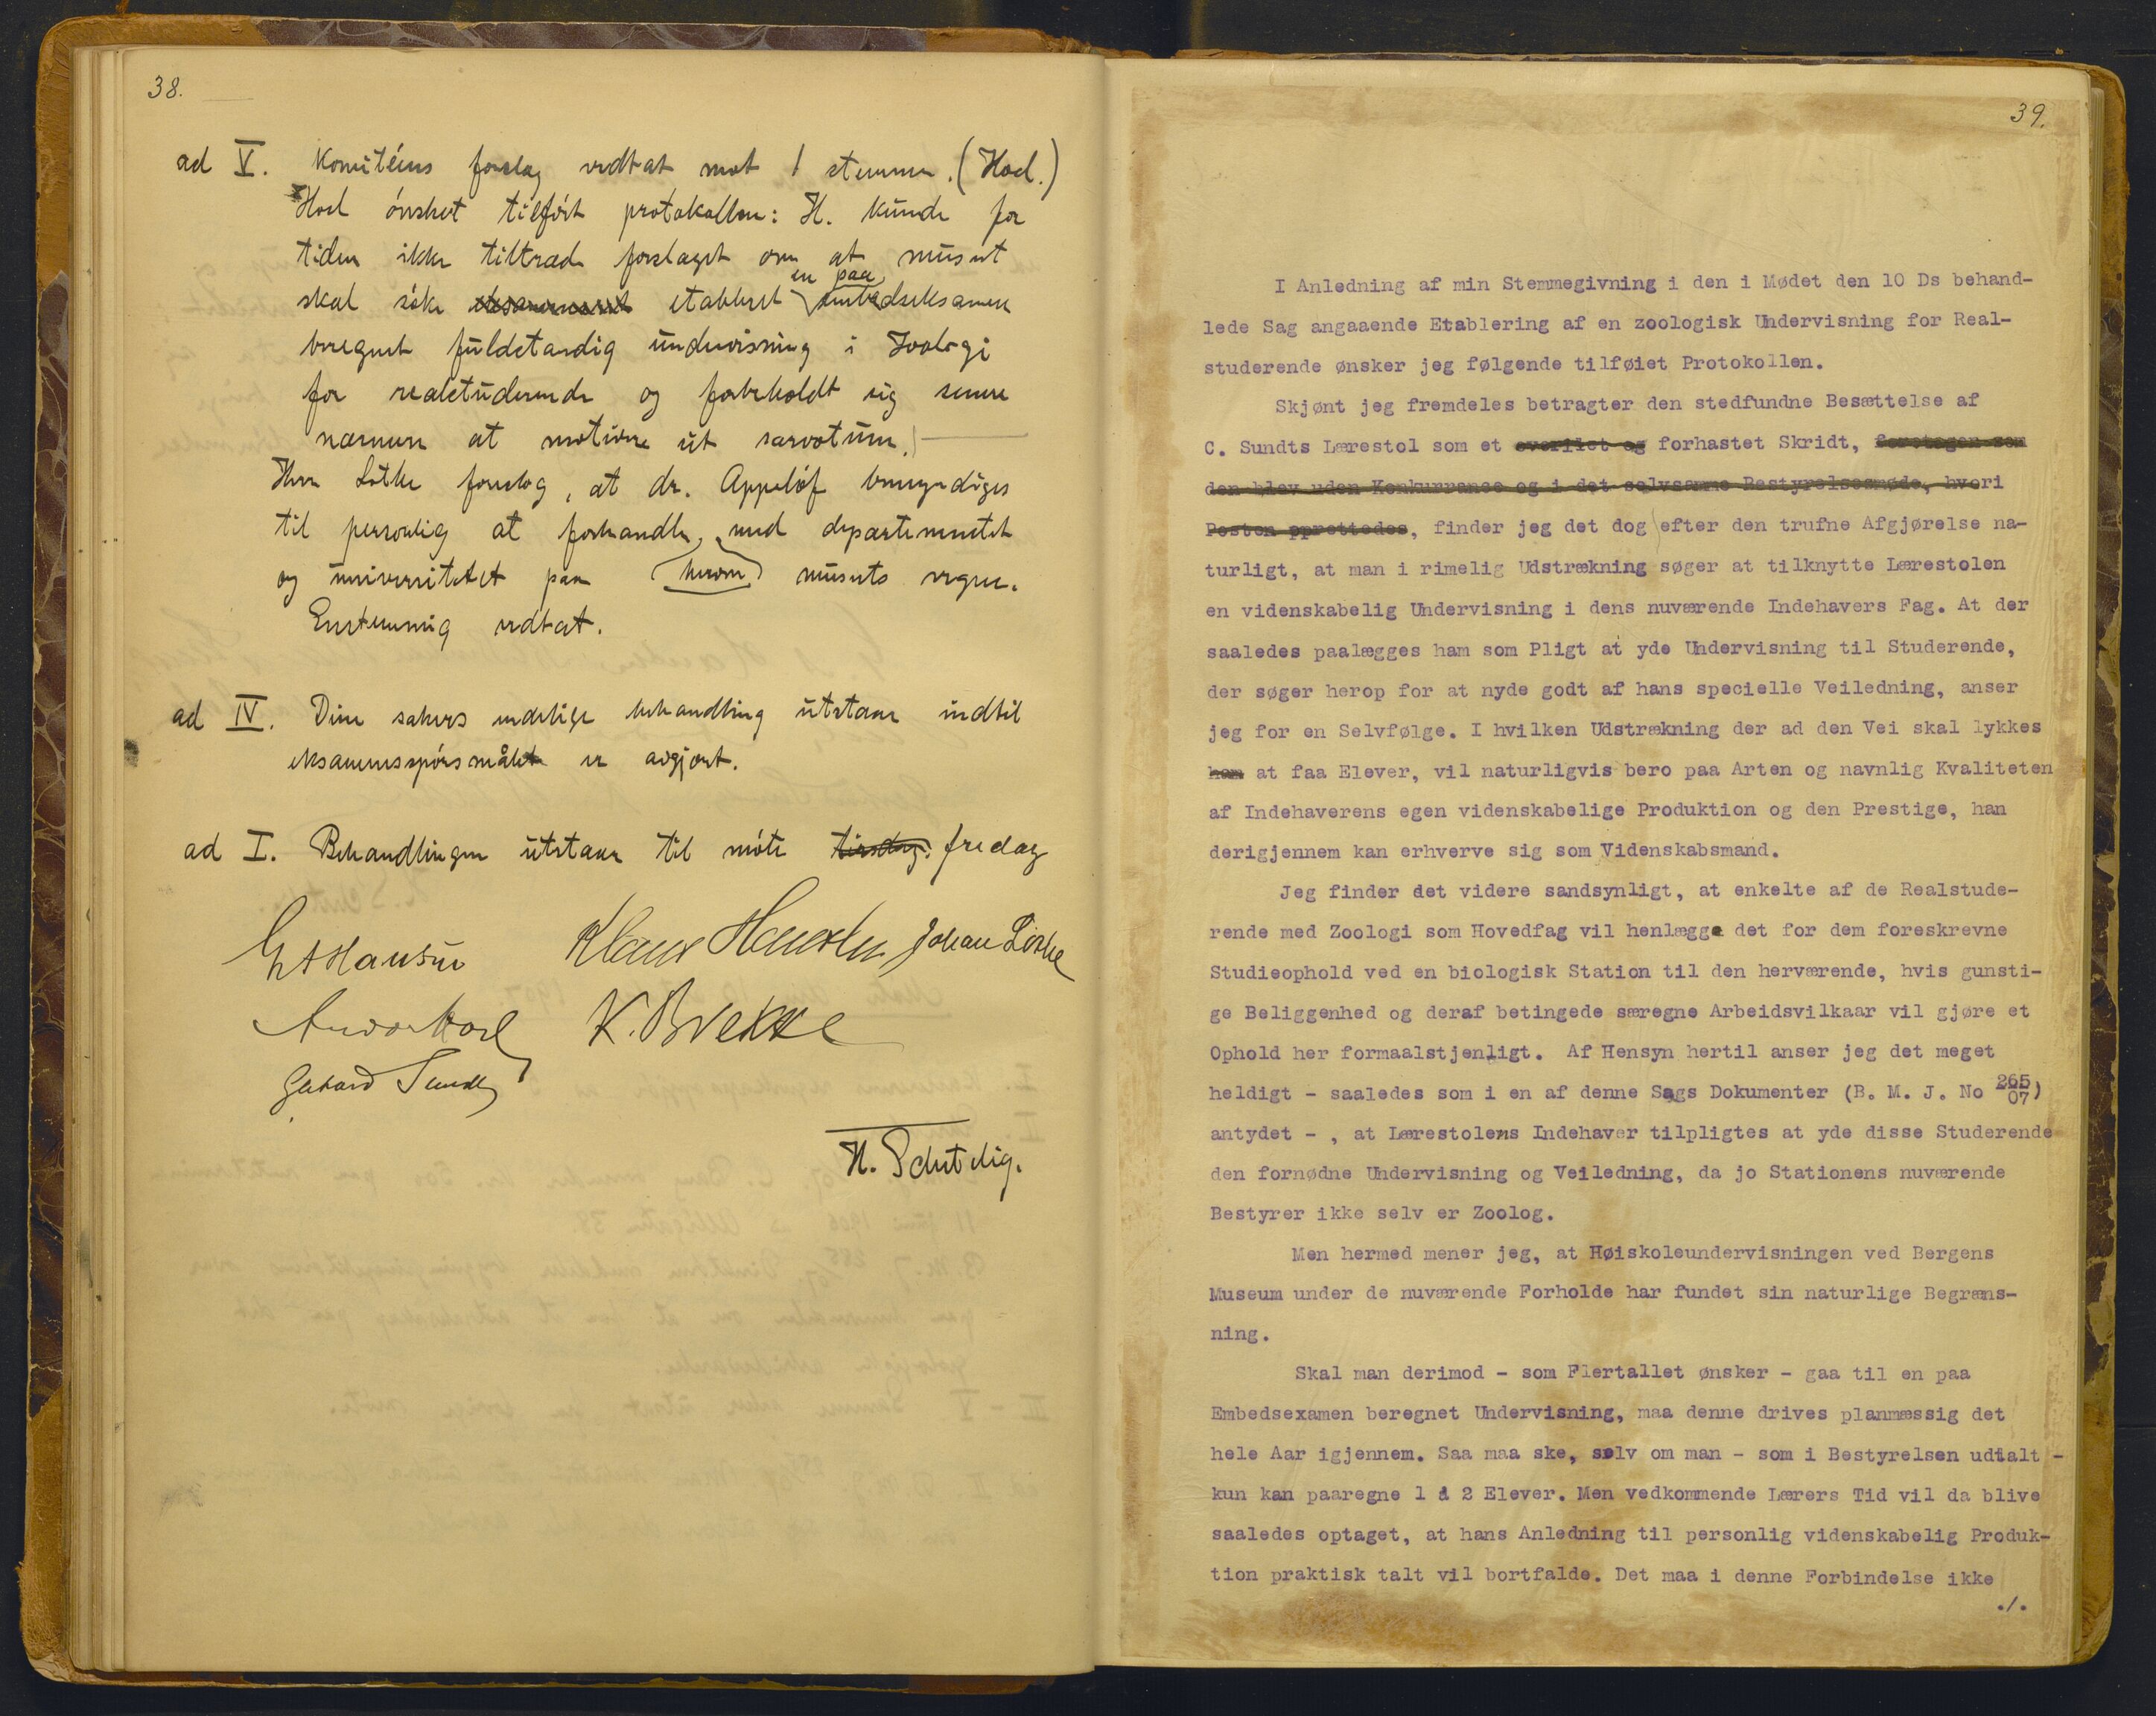 38.
ad V. Komitéens forslag vedtat mot 1 stemme. (Hoel.)
Hoel ønsket tilført protokollen: H. kunde for
tiden ikke tiltræde forslaget om at museet
en paa
skal søke etableret embedseksamen
beregnet fuldstændig undervisning i Zoologi
for realstuderende og forbeholdt sig senere
nærmere at motivere sit særvotum.)
Herr Lothe foreslog, at dr. Appeløf bemyndiges
til personlig at forhandle, med departementet
og universitetet paa (herom) museets vegne.
Enstemmig vedtat.
ad IV. Dine sakers endelige behandling utstaar indtil
eksamensspørsmålet er avgjort.
ad I. Behandlingen utstaar til møte tirsdag. fredag
Klaus Hanssen Johan Lothe
K. Brekke
Gerhard Sundt
H. Schetelig.
39.
I Anledning af min Stemmegivning i den i Mødet den 10 Ds behand-
lede Sag angaaende Etablering af en zoologisk Undervisning for Real-
studerende ønsker jeg følgende tilføiet Protokollen.
Skjønt jeg fremdeles betragter den stedfundne Besættelse af
C. Sundts Lærestol som et overilet og forhastet Skridt, foretagen som
den blev uden Konkurrance og i det selvsamme Bestyrelsesmøde, hvori
Posten pprettedes, finder jeg det dog efter den trufne Afgjørelse na-
turligt, at man i rimelig Udstrækning søger at tilknytte Lærestolen
en videnskabelig Undervisning i dens nuværende Indehavers Fag. At der
saaledes paalægges ham som Pligt at yde Undervisning til Studerende,
der søger herop for at nyde godt af hans specielle Veiledning, anser
jeg for en Selvfølge. I hvilken Udstrækning der ad den Vei skal lykkes
ham at faa Elever, vil naturligvis bero paa Arten og navnlig Kvaliteten
af Indehaverens egen videnskabelige Produktion og den Prestige, han
derigjennem kan erhverve sig som Videnskabsmand.
Jeg finder det videre sandsynligt, at enkelte af de Realstude-
rende med Zoologi som Hovedfag vil henlægge det for dem foreskrevne
Studieophold ved en biologisk Station til den herværende, hvis gunsti-
ge Beliggenhed og deraf betingede særegne Arbeidsvilkaar vil gjøre et
Ophold her formaalstjenligt. Af Hensyn hertil anser jeg det meget
heldigt - saaledes som i en af denne Sags Dokumenter (B. M. J. No 265/07)
antydet - , at Lærestolens Indehaver tilpligtes at yde disse Studerende
den fornødne Undervisning og Veiledning, da jo Stationens nuværende
Bestyrer ikke selv er Zoolog.
Men hermed mener jeg, at Høiskoleundervisningen ved Bergens
Museum under de nuværende Forholde har fundet sin naturlige Begræns-
ning.
Skal man derimod - som Flertallet ønsker - gaa til en paa
Embedsexamen beregnet Undervisning, maa denne drives planmæssig det
hele Aar igjennem. Saa maa ske, selv om man - som i Bestyrelsen udtalt -
kun kan paaregne 1 á 2 Elever. Men vedkommende Lærers Tid vil da blive
saaledes optaget, at hans Anledning til personlig videnskabelig Produk-
tion praktisk talt vil bortfalde. Det maa i denne Forbindelse ikke
./.